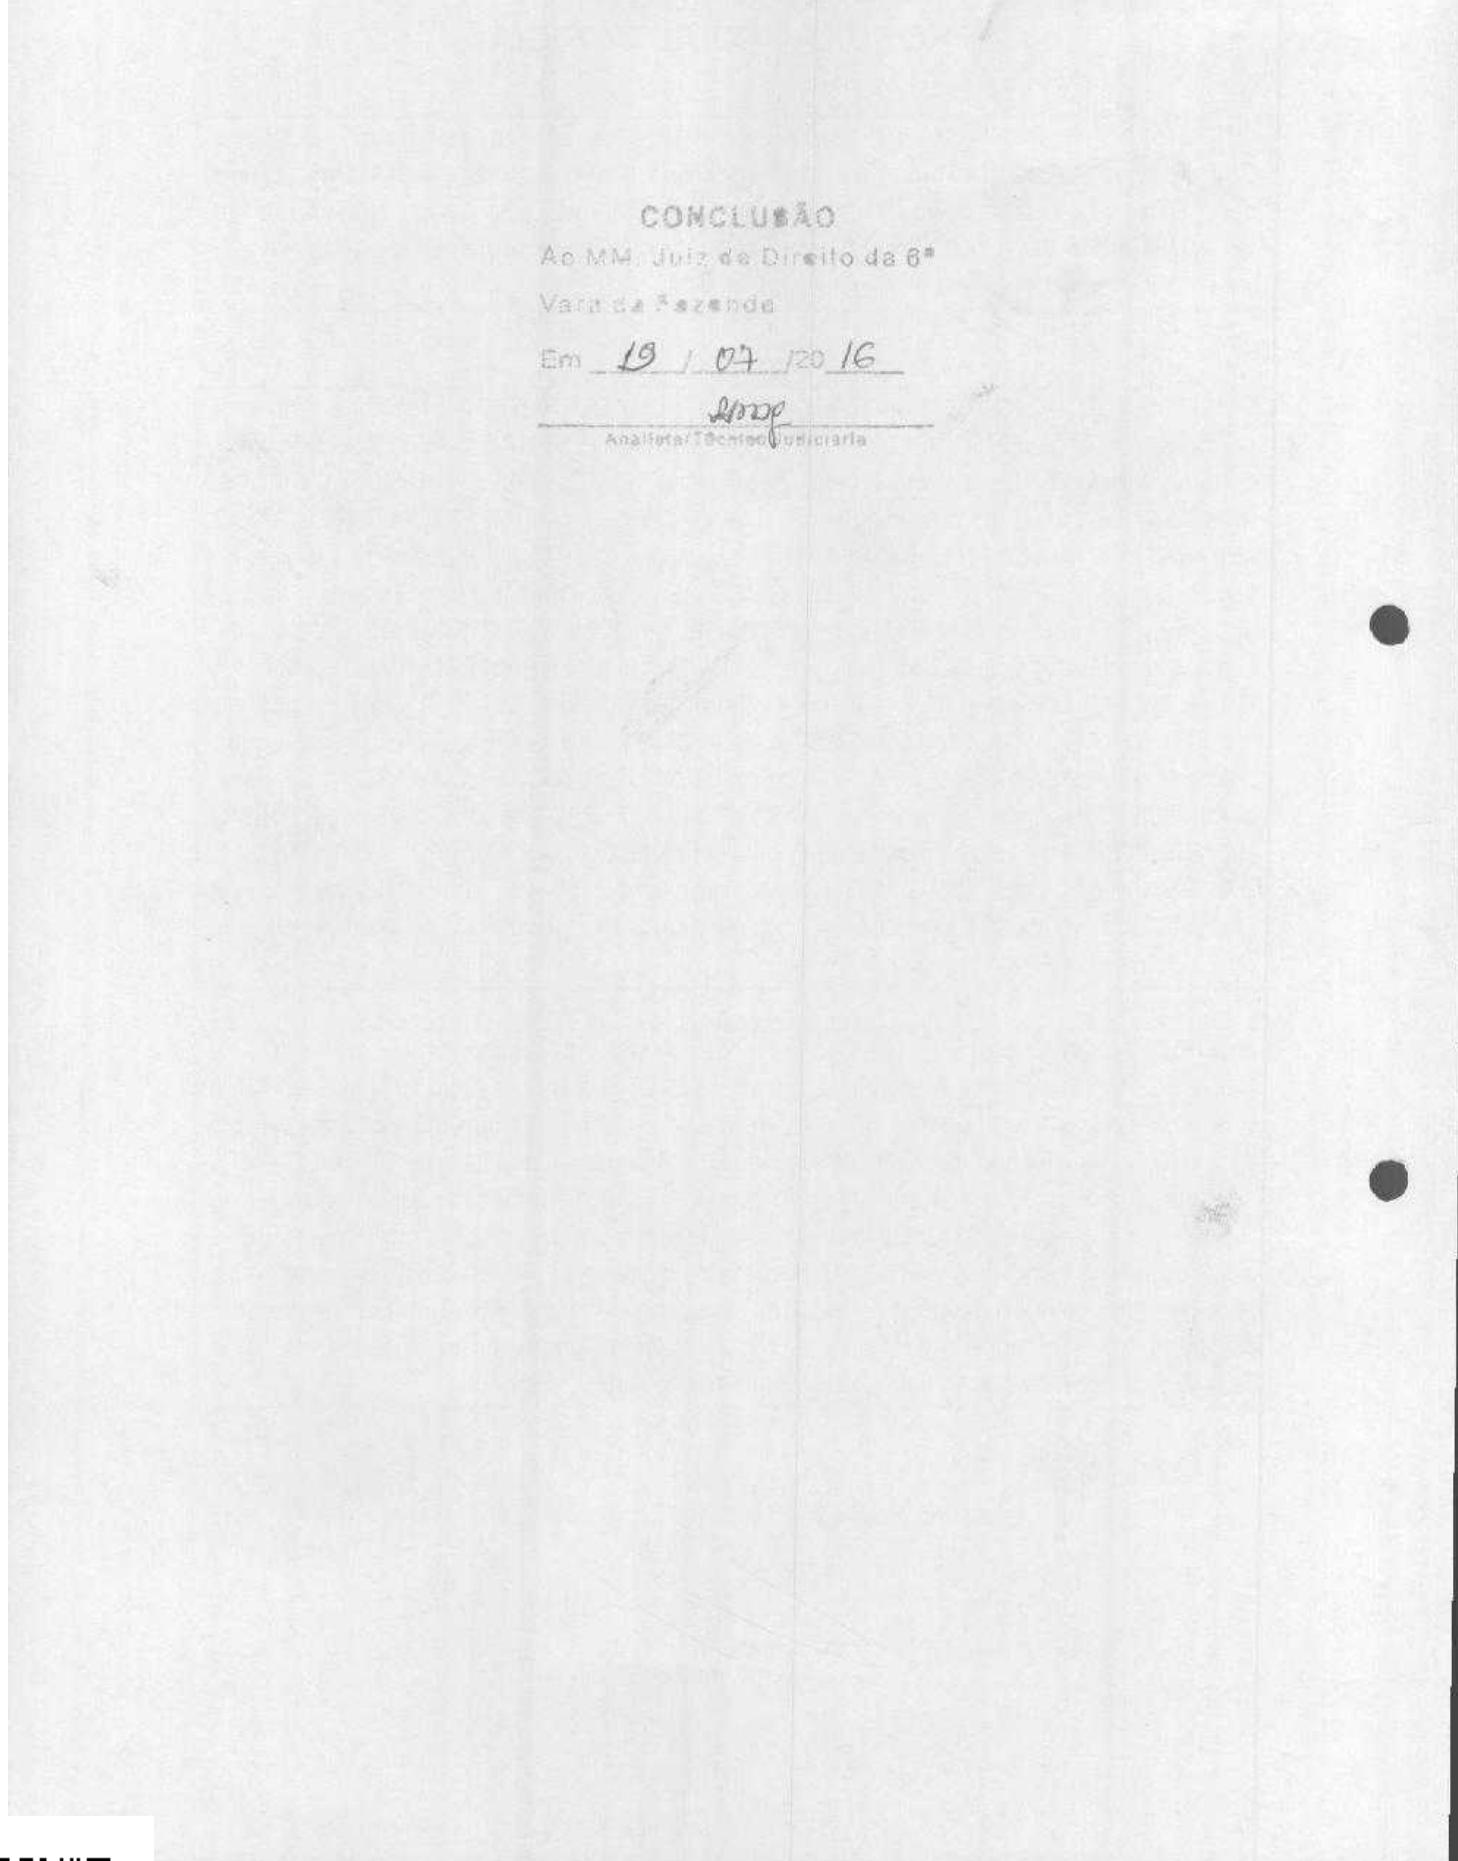 CONCLUSÃO
Ao MM. Juiz de Direito da 6ª
Vara da Fazenda
Em 19 / 07 /20 16
Analista/Técnico Judiciária